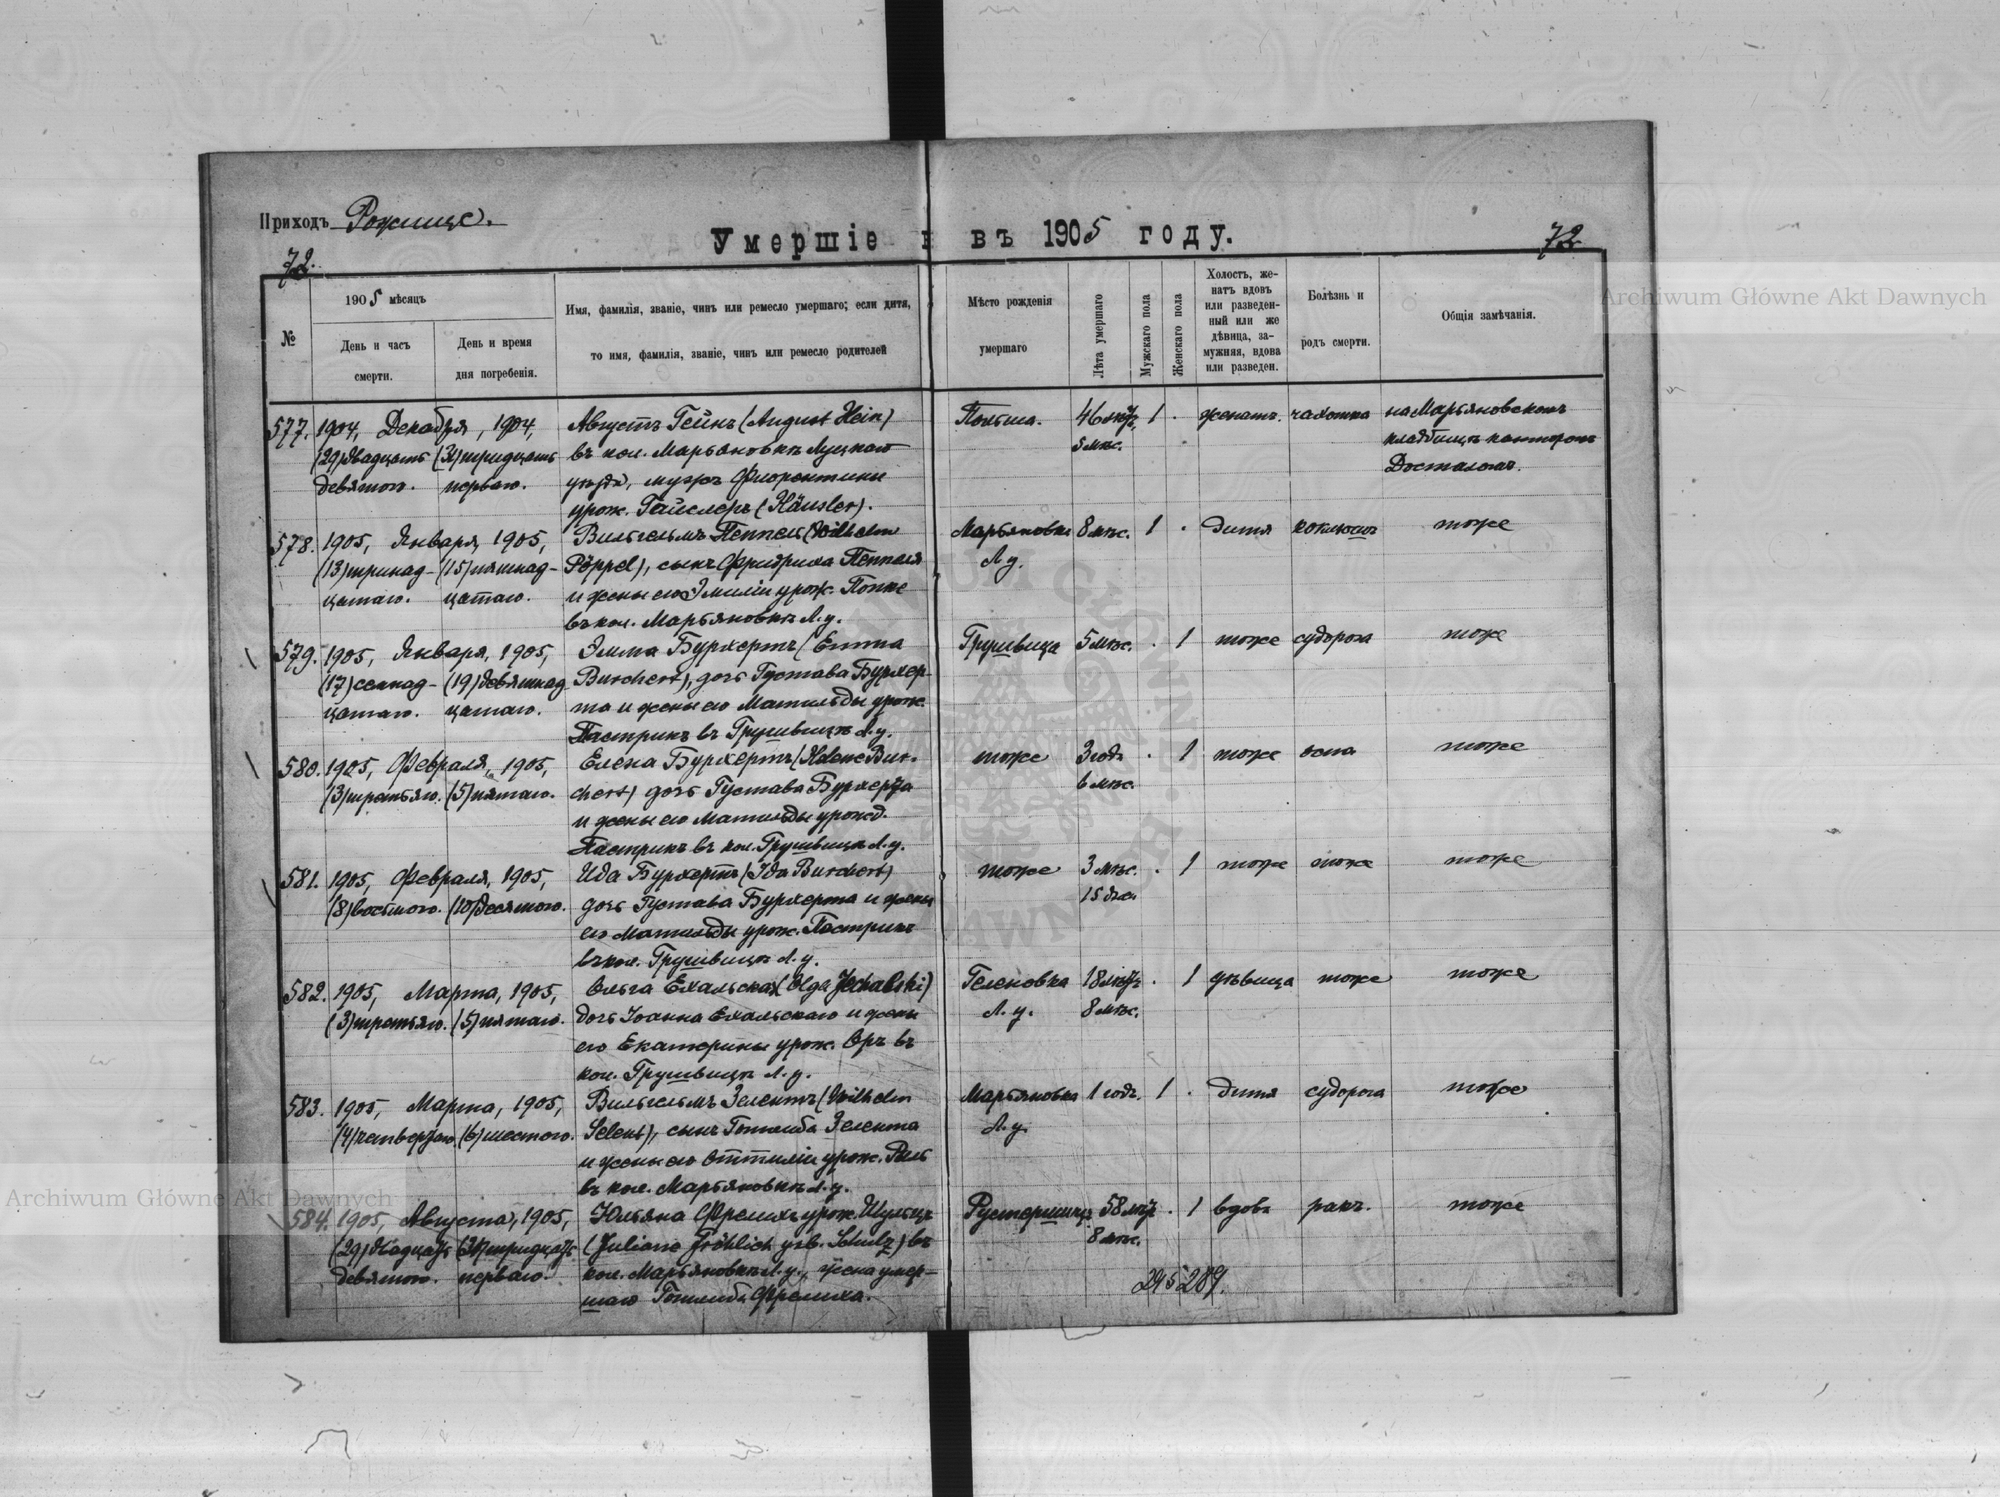 Приходъ Рожище.
Умершіе въ 1905 году.
72.
72
№
1905 мѣсяцъ
День и часъ
смерти.
День и время
дня погребенія.
Имя, фамилія, званіе, чинъ или ремесло умершаго; если дитя,
то имя, фамилія, званіе, чинъ или ремесло родителей
Мѣсто рожденія
умершаго
Лѣта умершаго
Мужскаго пола
Женскаго пола
Холостъ, же-
натъ вдовъ
или разведен-
ный или же
дѣвица, за-
мужняя, вдова
или разведен.
Болѣзнь и
родъ смерти.
Общія замѣчанія.
577. 1904, Декабря, 1904, Августъ Гейнъ (August Hein) Польша. 46 лѣтъ 1 . женатъ. чахотка на Марьяновскомъ
(29) двадцать (31) тридцать въ кол. Марьяновкѣ Луцкаго 5 мѣс. кладбищѣ канторомъ
девятого. перваго. уѣзда, мужъ Флорентины
урож. Гайслеръ (Häusler).
578. 1905, Января, 1905, Вильгельмъ Пеппель (Wilhelm Марьяновка 8 мѣс. 1 . дитя коклюшъ тоже
(13) тринад- (15) пятнад- Pöppel), сынъ Фридриха Пеппеля Л. у.
цатаго. цатаго. и жены его Эмиліи урож. Поппе
въ кол. Марьяновкѣ Л. у.
579. 1905, Января, 1905, Эмма Бурхертъ (Emma Грушвица 5 мѣс. . 1 тоже судорога тоже
(17) семнад- (19) девятнад- Burchert), дочь Густава Бурхер-
цатаго. цатаго. та и жены его Матильды урож.
Пастрикъ въ Грушвицѣ Л. у.
580. 1905, Февраля, 1905, Елена Бурхертъ (Helene Bur- тоже 3 года . 1 тоже оспа тоже
(3) третьяго. (5) пятаго. chert) дочь Густава Бурхерта 6 мѣс.
и жены его Матильды урожд.
Пастрикъ въ кол. Грушвицѣ Л. у.
581. 1905, Февраля, 1905, Ида Бурхертъ (Ida Burchert) тоже 3 мѣс. . 1 тоже тоже тоже
(8) восьмого. (10) десятого. дочь Густава Бурхерта и жены 15 дней
его Матильды урож. Пастрикъ
въ кол. Грушвицѣ Л. у.
582. 1905, Марта, 1905, Ольга Ехальская (Olga Jechalski) Геленовка 18 лѣтъ . 1 дѣвица тоже тоже
(3) третьяго. (5) пятаго. дочь Іоанна Ехальскаго и жены Л. у. 8 мѣс.
его Екатерины урож. Оръ въ
кол. Грушвицѣ Л. у.
583. 1905, Марта, 1905, Вильгельмъ Зелентъ (Wilhelm Марьяновка 1 годъ. 1 . дитя судорога тоже
(4) четвертаго (6) шестого. Selent), сынъ Готлиба Зелента Л. у.
и жены его Оттиліи урож.
въ кол. Марьяновкѣ Л. у.
584. 1905, Августа, 1905, Юльяна Фрелихъ урож. Шульцъ 58 лѣтъ . 1 вдова ракъ. тоже
(29) двадцать (31) тридцать (Juliane Fröhlich geb. Schulz) въ 8 мѣс.
девятого. перваго. кол. Марьяновкѣ Л. у., жена умер-
шаго Готлиба Фрелиха.
295 289.
Archiwum Główne Akt Dawnych
Archiwum Główne Akt Dawnych